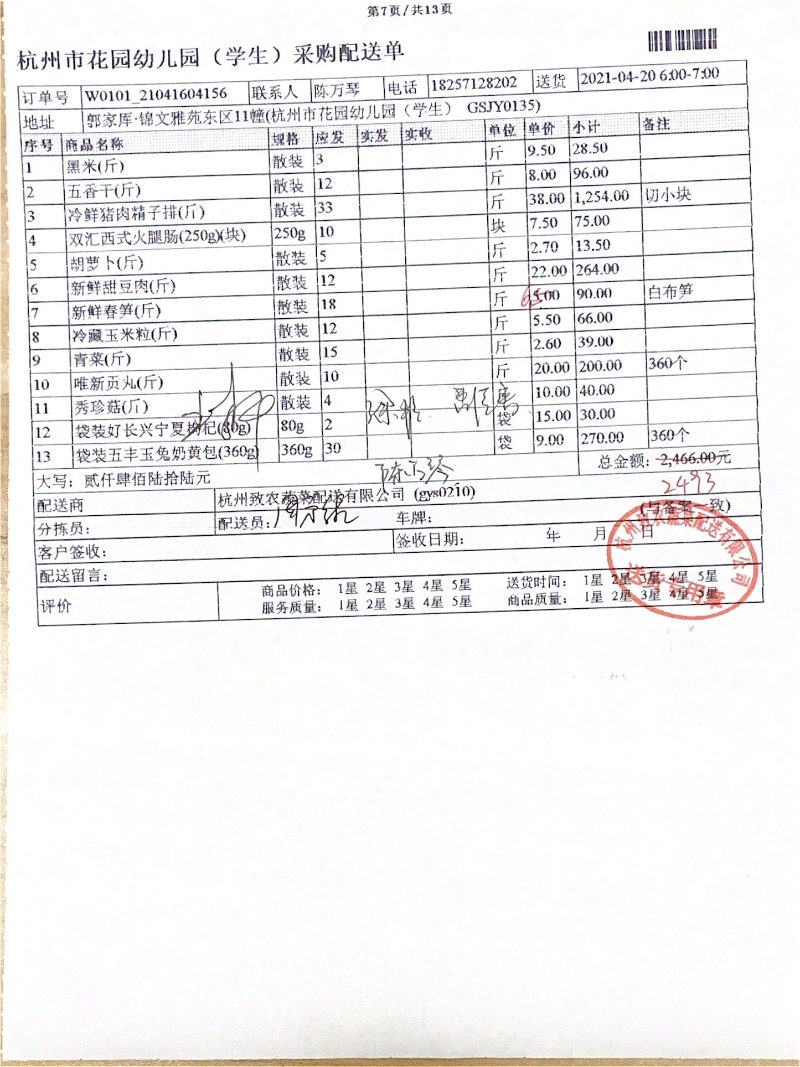 第7页/共13页
杭州市花园幼儿园（学生）采购配送单
订单号 W0101_21041604156 联系人 陈万琴 电话 18257128202 送货 2021-04-20 6:00-7:00
地址 郭家厍·锦文雅苑东区11幢(杭州市花园幼儿园（学生） GSJY0135)
序号 商品名称 规格 应发 实发 实收 单位 单价 小计 备注
1 黑米(斤) 散装 3 斤 9.50 28.50
2 五香干(斤) 散装 12 斤 8.00 96.00
3 冷鲜猪肉精子排(斤) 散装 33 斤 38.00 1,254.00 切小块
4 双汇西式火腿肠(250g)(块) 250g 10 块 7.50 75.00
5 胡萝卜(斤) 散装 5 斤 2.70 13.50
6 新鲜甜豆肉(斤) 散装 12 斤 22.00 264.00
7 新鲜春笋(斤) 散装 18 斤 5.00 90.00 白布笋
8 冷藏玉米粒(斤) 散装 12 斤 5.50 66.00
9 青菜(斤) 散装 15 斤 2.60 39.00
10 唯新贡丸(斤) 散装 10 斤 20.00 200.00 360个
11 秀珍菇(斤) 散装 4 10.00 40.00
12 袋装好长兴宁夏枸杞(80g) 80g 2 袋 15.00 30.00
13 袋装五丰玉兔奶黄包(360g) 360g 30 袋 9.00 270.00 360个
大写：贰仟肆佰陆拾陆元 总金额：2,466.00元
2493
陈万琴
配送商 杭州致农蔬菜配送有限公司 (gys0210) (与备案一致)
分拣员： 配送员： 车牌：
客户签收： 签收日期： 年 月 日
配送留言：
评价 商品价格： 1星 2星 3星 4星 5星 送货时间： 1星 2星 3星 4星 5星
服务质量： 1星 2星 3星 4星 5星 商品质量： 1星 2星 3星 4星 5星
杭州致农蔬菜配送有限公司
送货专用章